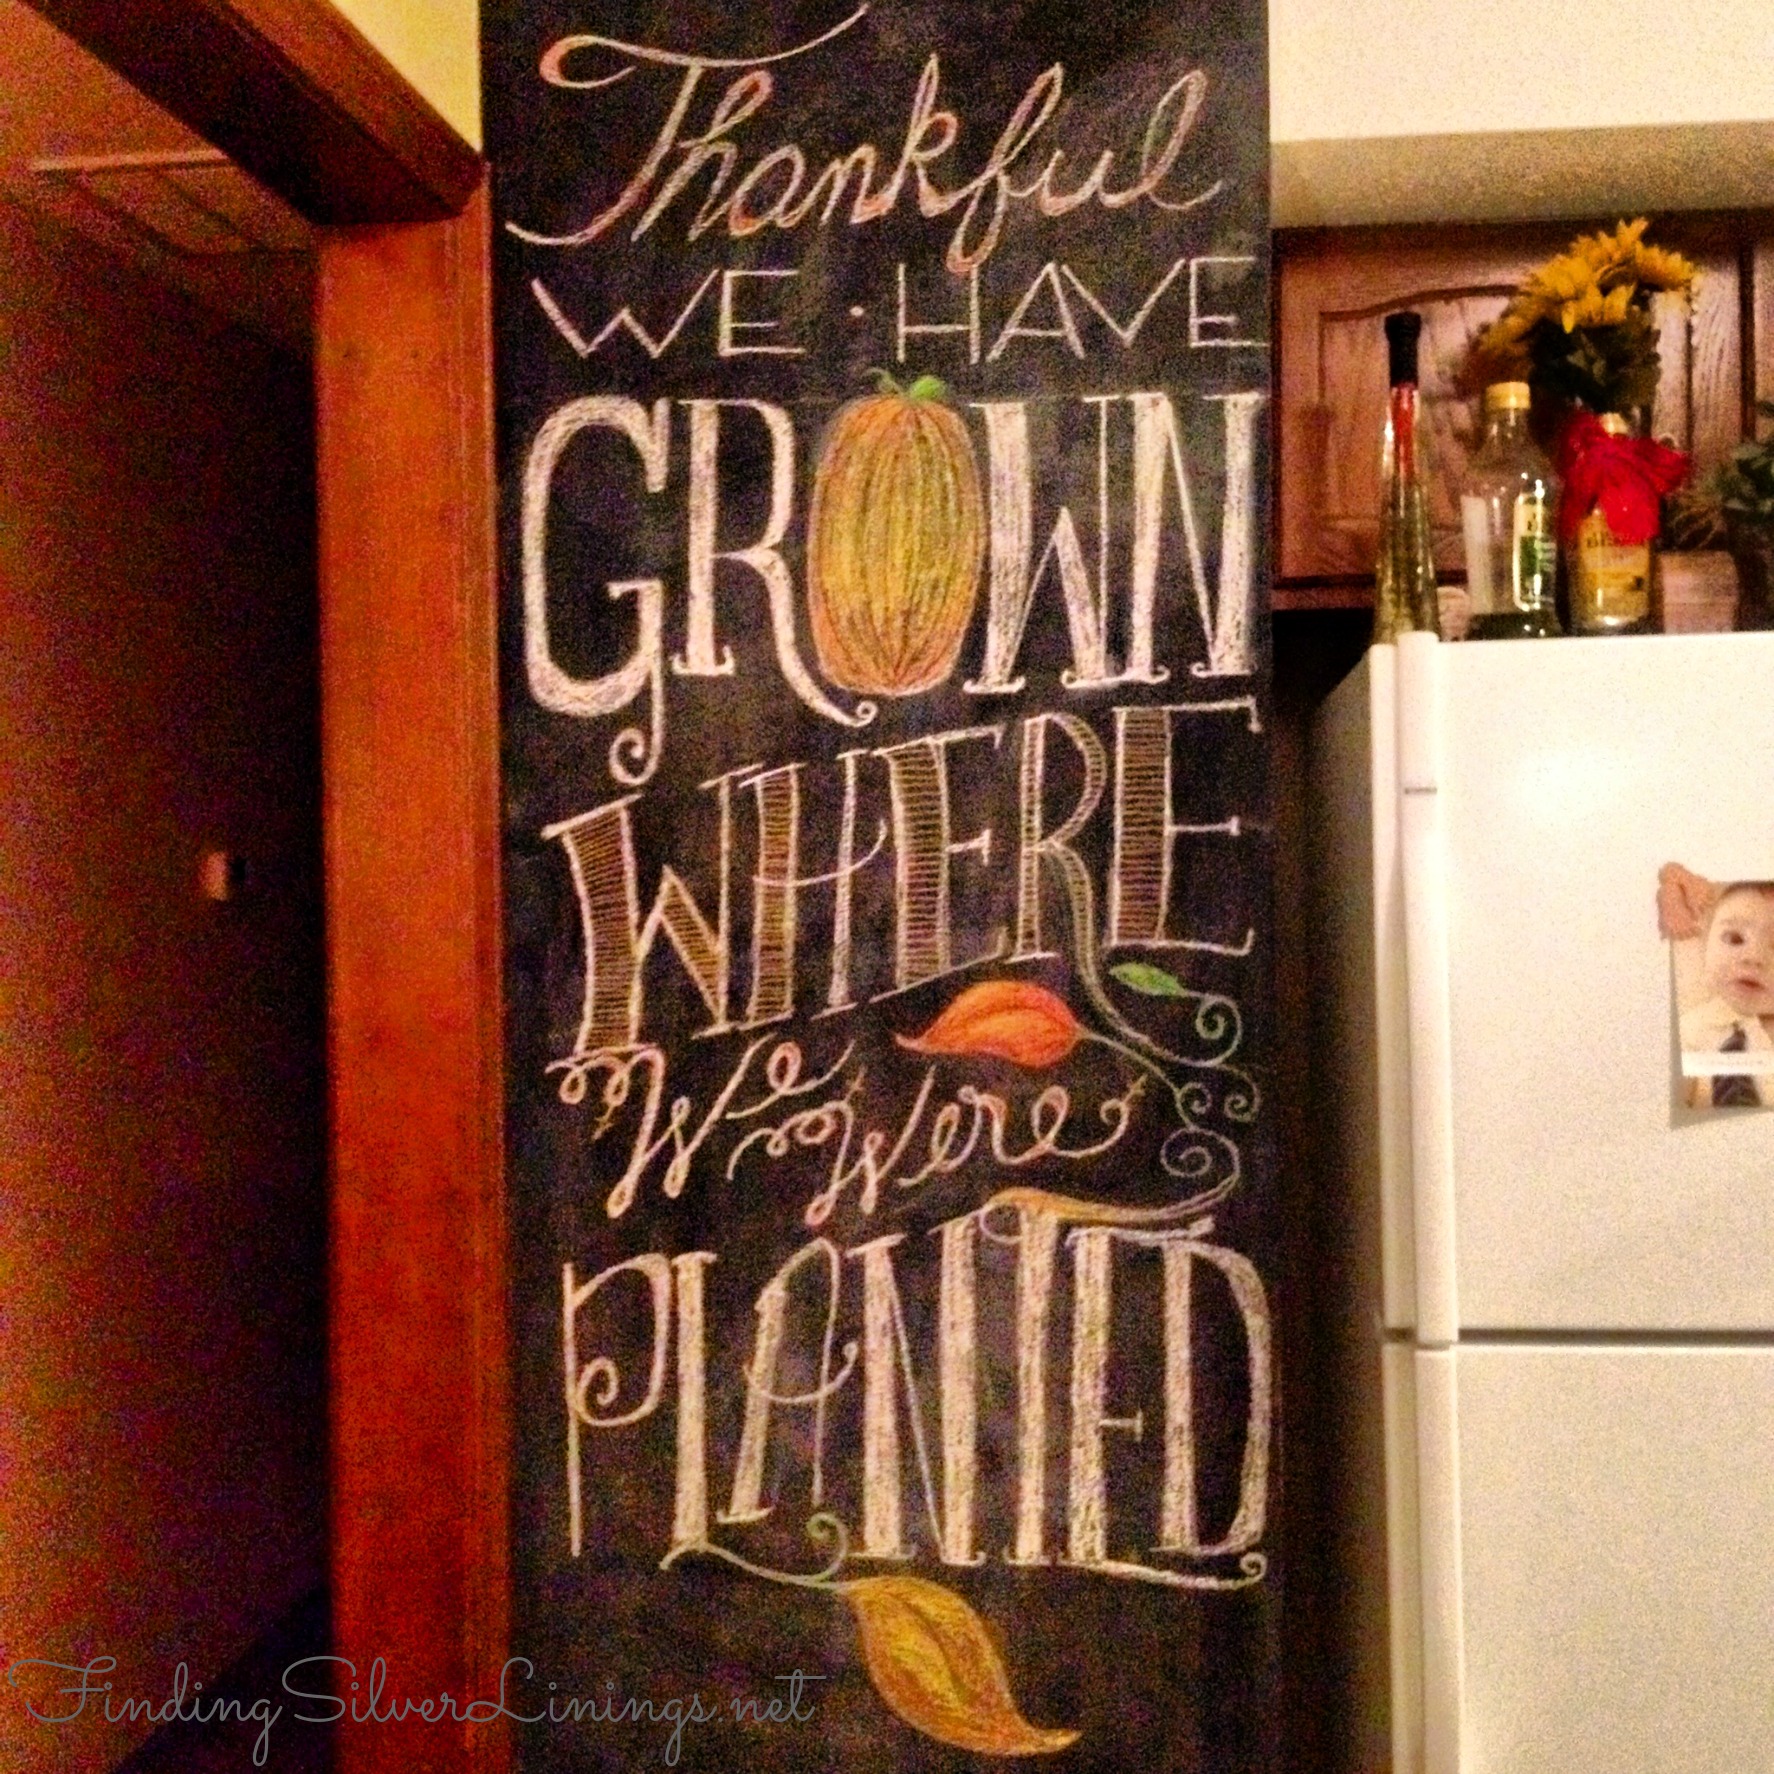 Thankful
WE · HAVE
GROWN
WHERE
We Were
PLANTED
FindingSilverLinings.net